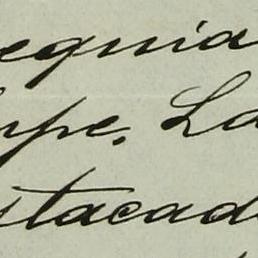 equia
upe. La
stacad